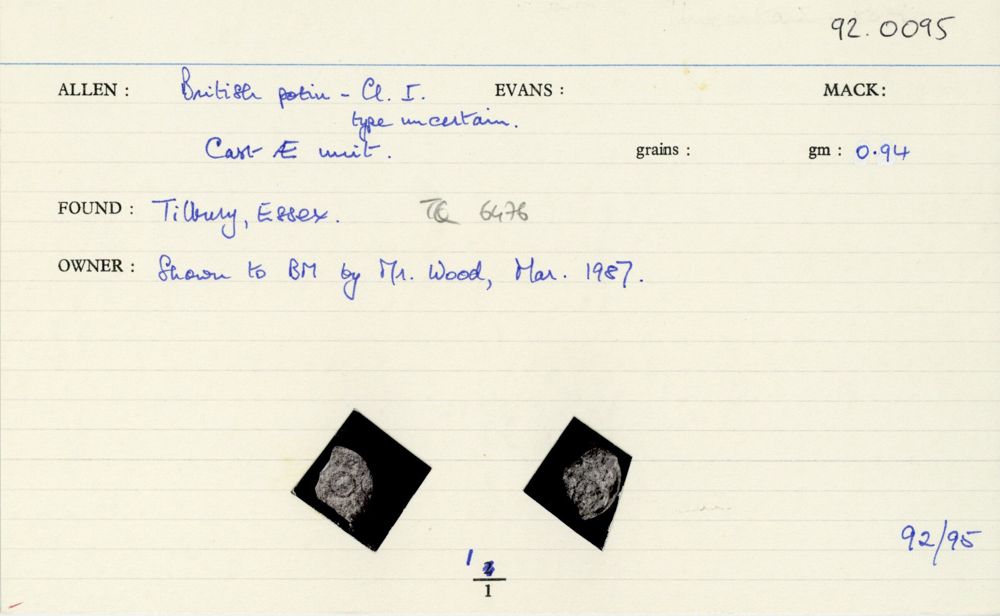 92.0095
ALLEN : British potin - Cl. I. EVANS : MACK:
type uncertain.
Cast Æ unit. grains : gm : 0.94
FOUND : Tilbury, Essex. TQ 6476
OWNER : Shown to BM by Mr. Wood, Mar. 1987.
1
1
92/95